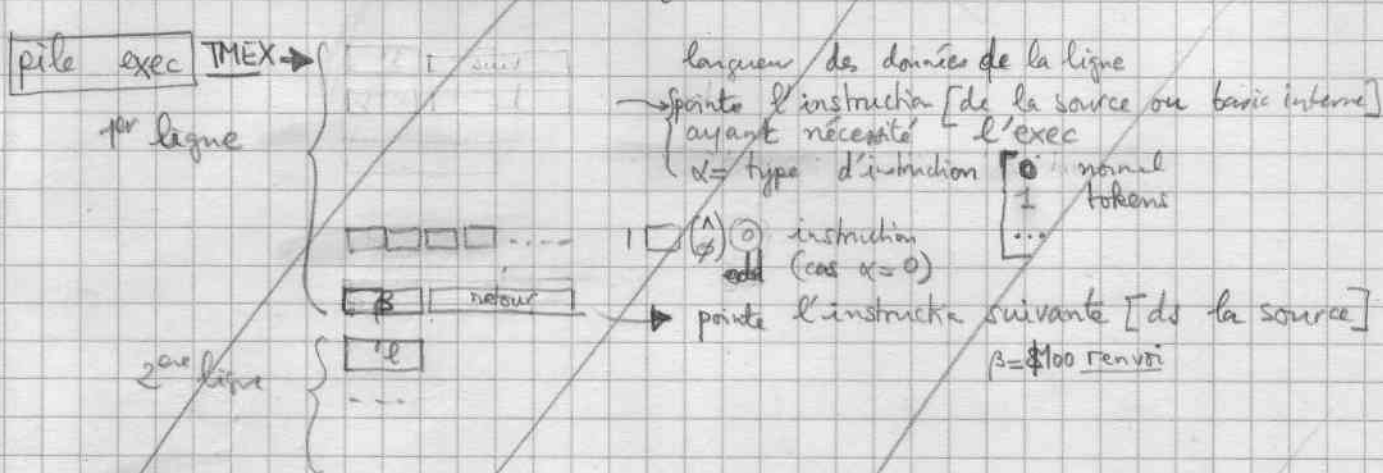 pile exec TMEX → longueur des données de la ligne
→ pointe l'instruction [de la source ou basic interne]
1er ligne ayant nécessité l'exec
α = type d'instruction 0 normal
1 tokens
...
.... 1 0 instruction
(cas α = 0)
β retour → pointe l'instruction suivante [ds la source]
'l β = $100 renvoi
2eme ligne